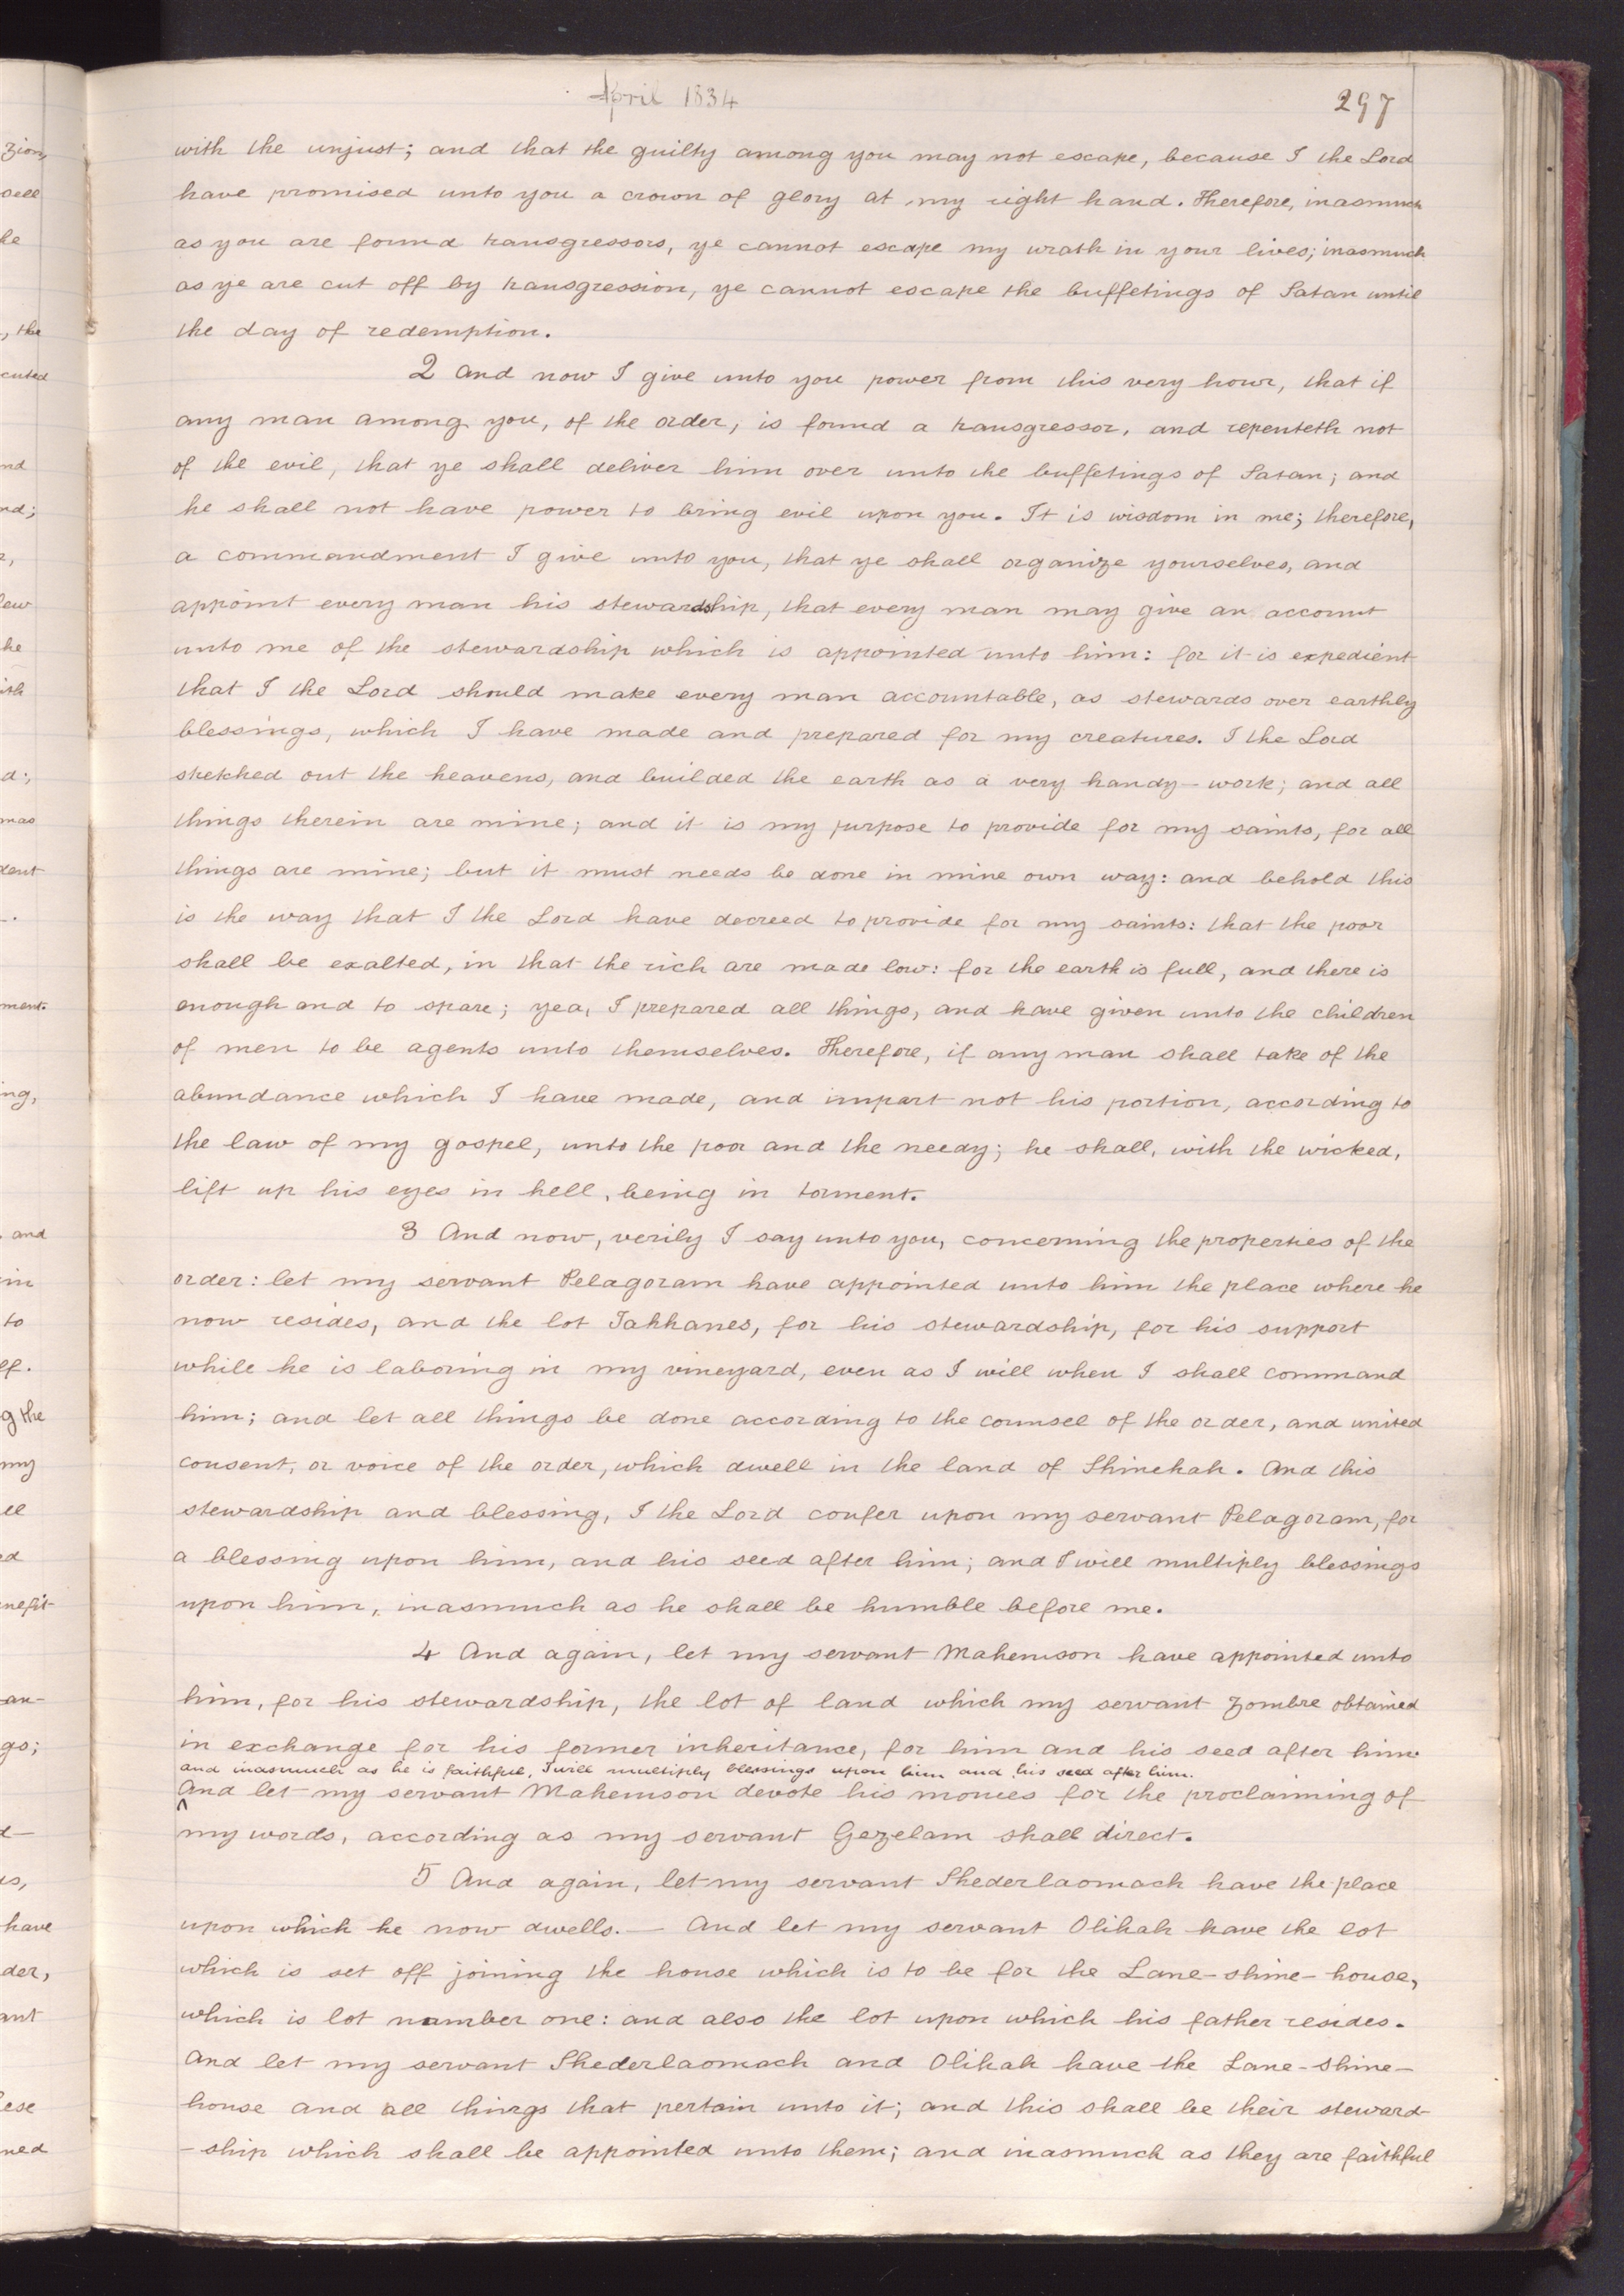 April 1834
297
with the unjust; and that the guilty among you may not escape, because I the Lord
have promised unto you a crown of glory at my right hand. Therefore, inasmuch
as you are found transgressors, ye cannot escape my wrath in your lives; inasmuch
as ye are cut off by transgression, ye cannot escape the buffetings of Satan until
the day of redemption.
2 And now I give unto you power from this very hour, that if
any man among you, of the order, is found a transgressor, and repenteth not
of the evil, that ye shall deliver him over unto the buffetings of Satan; and
he shall not have power to bring evil upon you. It is wisdom in me; therefore,
a commandment I give unto you, that ye shall organize yourselves, and
appoint every man his stewardship, that every man may give an account
unto me of the stewardship which is appointed unto him: for it is expedient
that I the Lord should make every man accountable, as stewards over earthly
blessings, which I have made and prepared for my creatures. I the Lord
stretched out the heavens, and builded the earth as a very handy-work; and all
things therein are mine; and it is my purpose to provide for my saints, for all
things are mine; but it must needs be done in mine own way: and behold this
is the way that I the Lord have decreed to provide for my saints: that the poor
shall be exalted, in that the rich are made low: for the earth is full, and there is
enough and to spare; yea, I prepared all things, and have given unto the children
of men to be agents unto themselves. Therefore, if any man shall take of the
abundance which I have made, and impart not his portion, according to
the law of my gospel, unto the poor and the needy; he shall, with the wicked,
lift up his eyes in hell, being in torment.
3 And now, verily I say unto you, concerning the properties of the
order: let my servant Pelagoram have appointed unto him the place where he
now resides, and the lot Tahhanes, for his stewardship, for his support
while he is laboring in my vineyard, even as I will when I shall command
him; and let all things be done according to the counsel of the order, and united
consent, or voice of the order, which dwell in the land of Shinehah. And this
stewardship and blessing, I the Lord confer upon my servant Pelagoram, for
a blessing upon him, and his seed after him; and I will multiply blessings
upon him, inasmuch as he shall be humble before me.
4 And again, let my servant Mahemson have appointed unto
him, for his stewardship, the lot of land which my servant Zombre obtained
in exchange for his former inheritance, for him and his seed after him
and inasmuch as he is faithful, I will multiply blessings upon him and his seed after him.
And let my servant Mahemson devote his monies for the proclaiming of
my words, according as my servant Gezelam shall direct.
5 And again, let my servant Shederlaomach have the place
upon which he now dwells. — And let my servant Olihah have the lot
which is set off joining the house which is to be for the Lane-shine-house,
which is lot number one: and also the lot upon which his father resides.
And let my servant Shederlaomach and Olihah have the Lane-shine-
house and all things that pertain unto it; and this shall be their steward-
-ship which shall be appointed unto them; and inasmuch as they are faithful